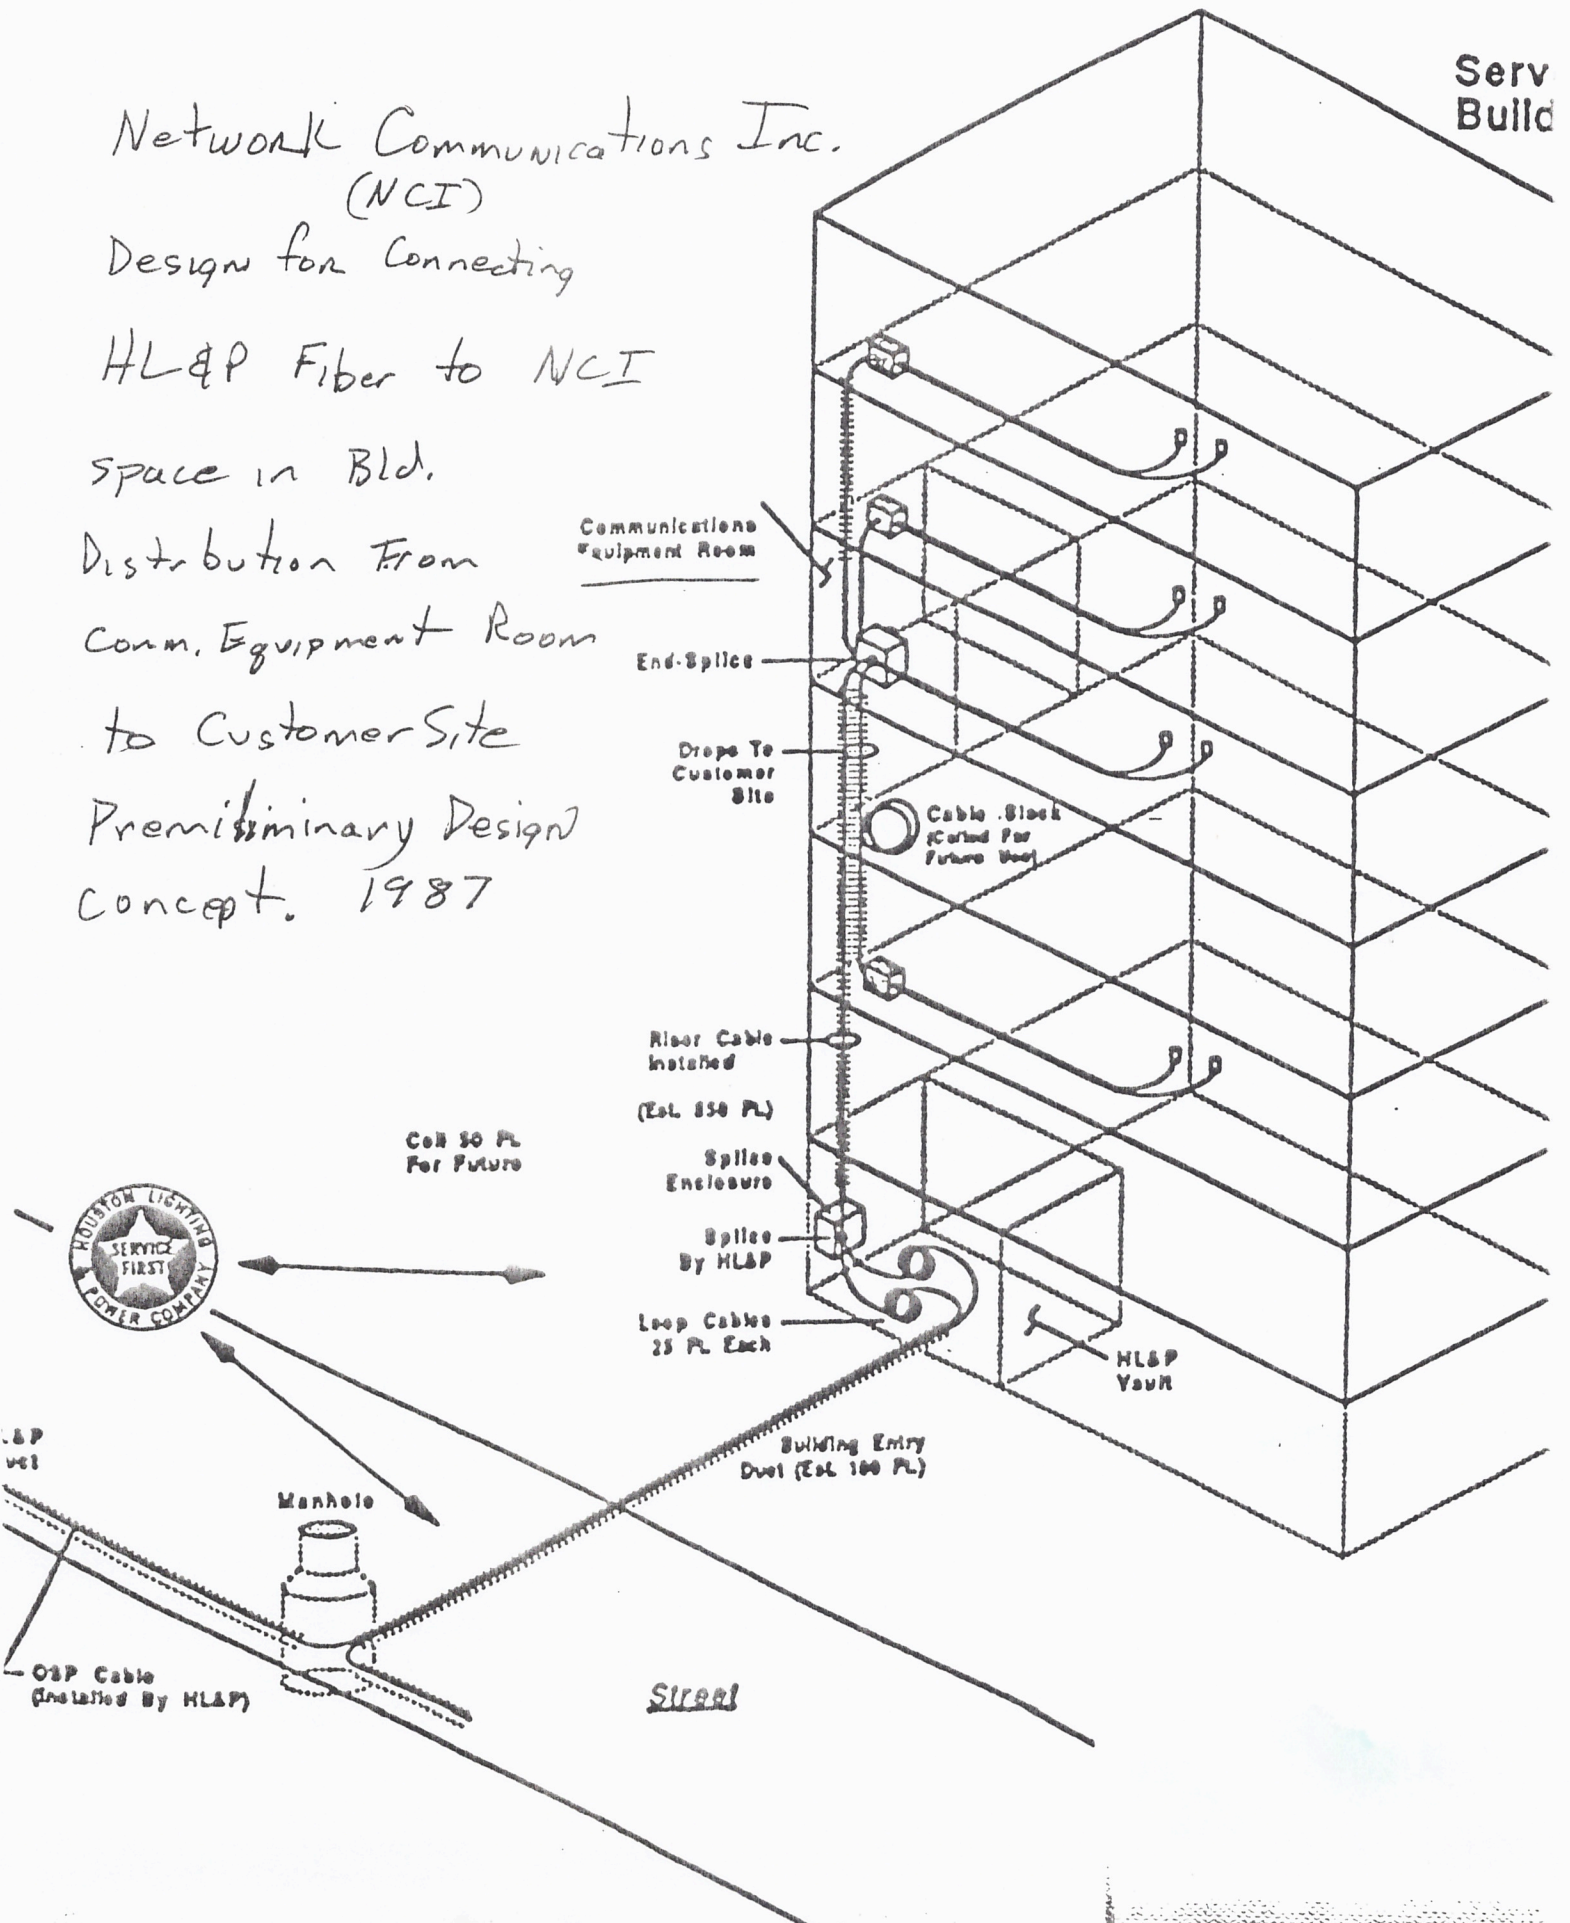 Network Communications Inc.
(NCI)
Design for Connecting
HL&P Fiber to NCI
space in Bld.
Distribution From
Comm. Equipment Room
to Customer Site
Premiliminary Design
Concept. 1987
Serv
Build
Communications
Equipment Room
End-Splice
Drops To
Customer
Site
Cable Slack
(Coiled For
Future Use)
Riser Cable
Installed
(Est. 350 Ft.)
Coil 50 Ft.
For Future
Splice
Enclosure
Splice
By HL&P
Loop Cables
25 Ft. Each
HL&P
Vault
HOUSTON LIGHTING
& POWER COMPANY
SERVICE
FIRST
Building Entry
Duct (Est. 100 Ft.)
L&P
uct
Manhole
OSP Cable
(Installed By HL&P)
Street